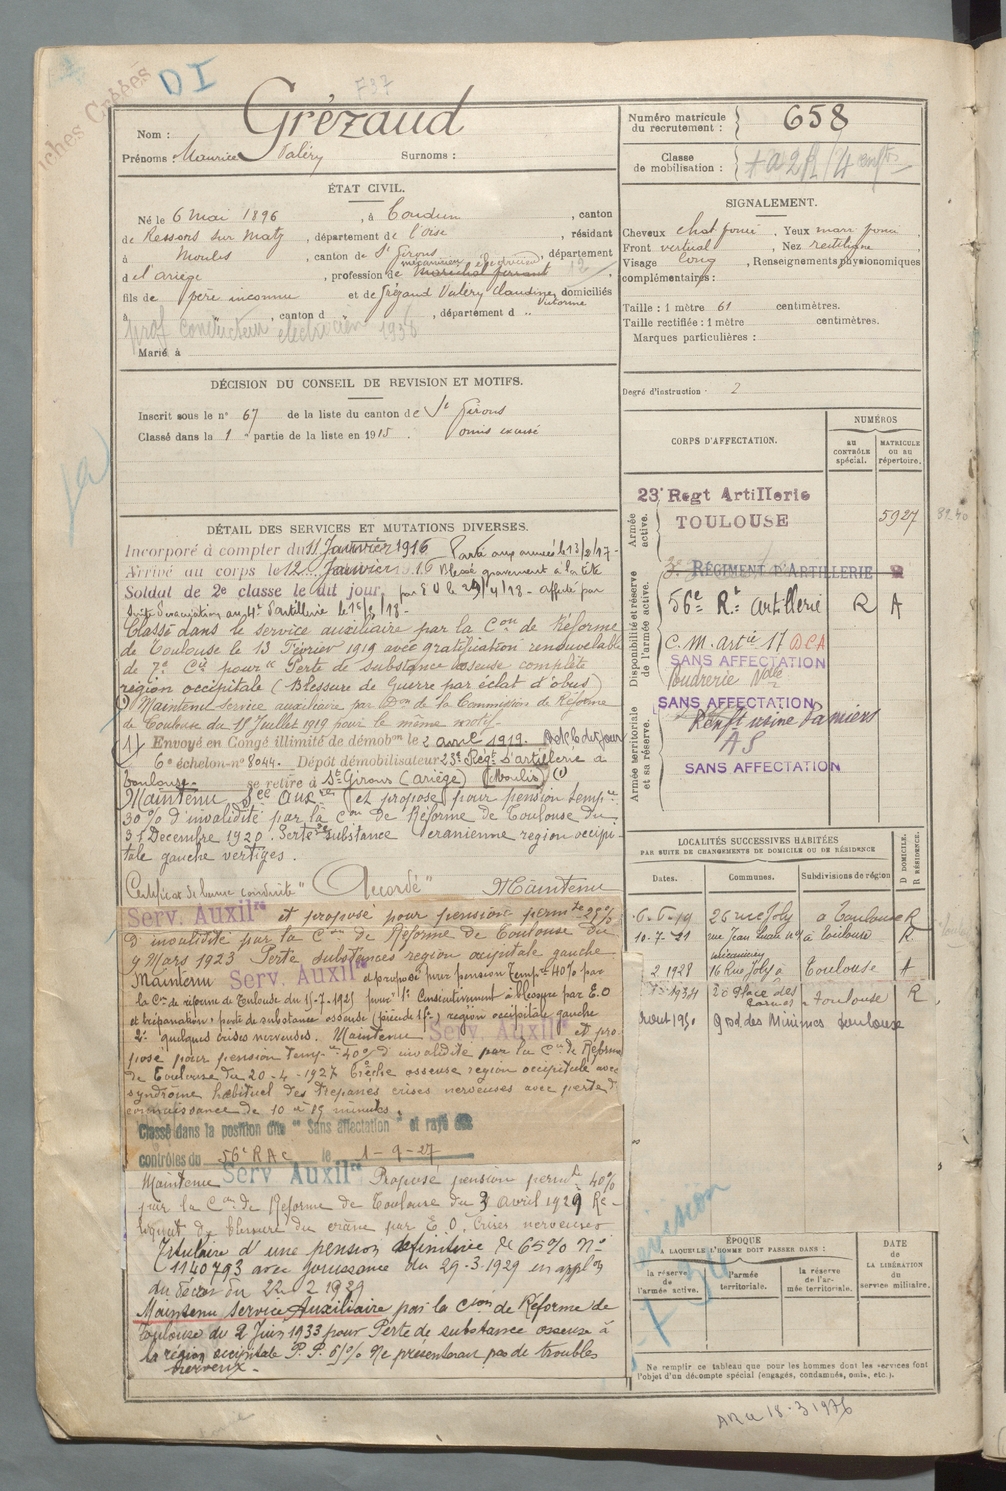 DI
F37
Fiches Créées
Nom : Grézaud
Prénoms : Maurice Valéry Surnoms :
Numéro matricule du recrutement : 658
Classe de mobilisation :
ÉTAT CIVIL.
Né le 6 mai 1896, à Coudun, canton
de Ressons sur Matz, département de l'oise, résidant
à Moulis, canton de St Girons, département
d e l'ariège, profession de mécanicien électricien maréchal ferrant 12
fils de père inconnu et de Grézaud Valéry Claudine Victorine domiciliés
à " , canton d " , département d "
prof conducteur électricien 1936
Marié à
SIGNALEMENT.
Cheveux chat foncé Yeux marr foncé
Front vertical, Nez rectiligne
Visage long, Renseignements physionomiques
complémentaires :
Taille : 1 mètre 61 centimètres.
Taille rectifiée : 1 mètre centimètres.
Marques particulières :
Degré d'instruction : 2
DÉCISION DU CONSEIL DE REVISION ET MOTIFS.
Inscrit sous le n° 67 de la liste du canton de St Girons
Classé dans la 1e partie de la liste en 1915. omis excusé
DÉTAIL DES SERVICES ET MUTATIONS DIVERSES.
Incorporé à compter du 11 Janvier 1916 Parti aux armées le 13/2/17 -
Arrivé au corps le 12 Janvier 1916 Blessé gravement à la tête
Soldat de 2e classe le dit jour, par E O le 29/4/18 - affecté par
suite d'évacuation au 4t d'artillerie le
Classé dans le service auxiliaire par la Con de Réforme
de Toulouse le 13 Février 1919 avec gratification renouvelable
de 7e Cie pour " Perte de substance osseuse complète
région occipitale (Blessure de Guerre par éclat d'obus)
(1) Maintenu Service auxiliaire par Don de la Commission de Réforme
de Toulouse du 18 Juillet 1919 pour le même motif -
(1) Envoyé en Congé illimité de démobon le 2 avril 1919.
6e échelon - n° 8044. Dépôt démobilisateur 23e Régt d'artillerie à
Toulouse se retire à St Girons (ariège) (Moulis) (1)
Maintenu Sce Auxre et proposé pour pension tempre
30 % d'invalidité par la Con de Réforme de Toulouse du
31 Decembre 1920. Perte de substance cranienne region occipi-
tale gauche vertiges.
Certificat de bonne conduite " Accordé " Maintenu
Serv. Auxilre et proposé pour pension permte 25 %
d'invalidité par la Con de Réforme de Toulouse du
9 Mars 1923 Perte substances région occipitale gauche
Maintenu Serv. Auxilre et proposé pour pension Tempre 40% par
la Con de réforme de Toulouse du pour 1° Consécutivement à blessure par E.O
et trépanation, perte de substance osseuse région occipitale gauche
2° quelques crises nerveuses. Maintenu Serv. Auxilre et pro-
posé pour pension tempre 40% d'invalidité par la Con de Réforme
de Toulouse du 20 - 4 - 1927 brèche osseuse region occipitale avec
syndrôme habituel des trépanés crises nerveuses avec perte de
connaissance de 10 à 15 minutes.
Classé dans la position dite "Sans affectation" et rayé des
contrôles du 56e RAC le 1 - 9 - 27
Maintenu Serv Auxilre Proposé pension permte 40%
par la Con de Réforme de Toulouse du 3 avril 1929 Re-
liquat de blessure du crâne par E O, Crises nerveuses
Titulaire d'une pension définitive de 65% N°
1140793 avec jouissance du 29-3-1929 en applon
du décret du 22 2 1929
Maintenu Service Auxiliaire par la Cion de Réforme de
Toulouse du 2 Juin 1933 pour Perte de substance osseuse à
la région occipitale P. P. 65% Ne présenterait pas de troubles
nerveux -
CORPS D'AFFECTATION.
NUMÉROS
AU CONTRÔLE spécial.
MATRICULE OU AU RÉPERTOIRE.
Armée active.
23e Regt Artillerie
TOULOUSE
5927
Disponibilité et réserve de l'armée active.
3e RÉGIMENT D'ARTILLERIE
56e Rt Artillerie R A
C. M. Artie 17 DCA
SANS AFFECTATION
Poudrerie Nale
Armée territoriale et sa réserve.
SANS AFFECTATION
Renft usine Pamiers
AS
SANS AFFECTATION
LOCALITÉS SUCCESSIVES HABITÉES
PAR SUITE DE CHANGEMENTS DE DOMICILE OU DE RÉSIDENCE
Dates. Communes. Subdivisions de région D DOMICILE. R RÉSIDENCE.
6-6-19 26 rue Joly à Toulouse R
10-7-21 à Toulouse R
mécanicien
2 1928 16 Rue Joly à Toulouse A
1934 20 Place des Carmes Toulouse R
9 Bd des Minimes Toulouse
ÉPOQUE
A LAQUELLE L'HOMME DOIT PASSER DANS :
la réserve de l'armée active.
l'armée territoriale.
la réserve de l'armée territoriale.
DATE de LA LIBÉRATION du service militaire.
Ne remplir ce tableau que pour les hommes dont les services font
l'objet d'un décompte spécial (engagés, condamnés, omis, etc.).
18-3 1976